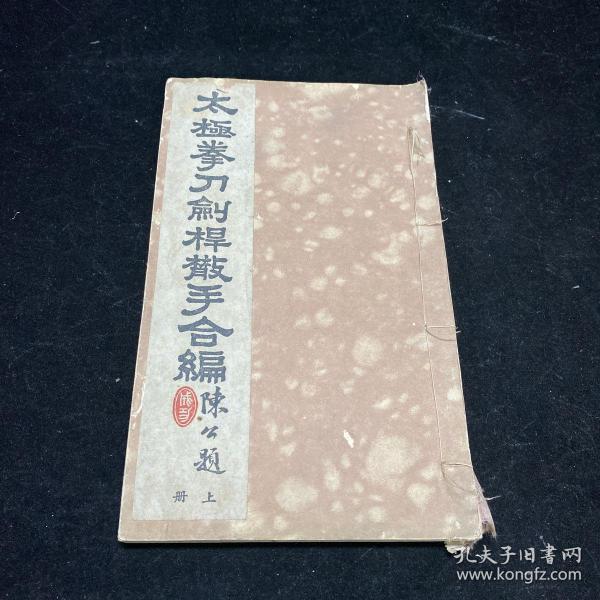 太極拳刀劍桿散手合編
陳公題
上册
孔夫子旧書网
www.kongfz.com